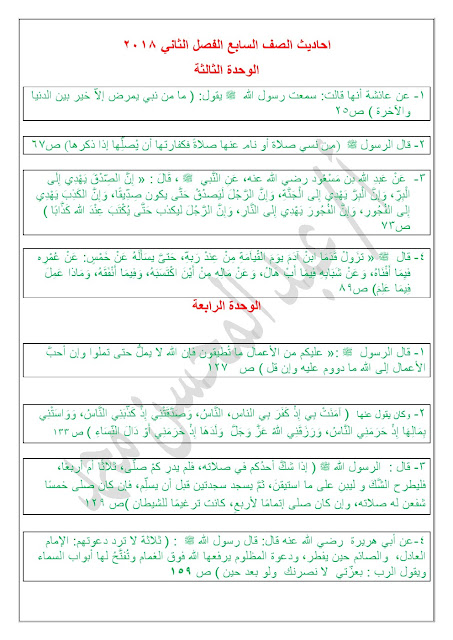 احاديث الصف السابع الفصل الثاني ٢٠١٨
الوحدة الثالثة
١- عن عائشة أنها قالت: سمعت رسول الله ﷺ يقول: ( ما من نبي يمرض إلاّ خير بين الدنيا
والآخرة ) ص٢٥
٢- قال الرسول ﷺ (من نسي صلاة أو نام عنها صلاةً فكفارتها أن يُصلِّها إذا ذكرها) ص٦٧
٣- عَنْ عَبدِ اللهِ بنِ مَسْعُودٍ رضي الله عنه، عَنِ النَّبِي ﷺ ، قَالَ : « إنَّ الصِّدْقَ يَهْدِي إلى
الْبِرِّ، وَإنَّ الْبِرَّ يَهْدِي إلى الْجَنَّة، وَإنَّ الرَّجُلَ لَيَصْدُقُ حَتَّى يكون صدِّيقًا، وَإنَّ الكَذَبَ يَهْدِي
إلى الفُجُورِ، وَإنَّ الفُجُورَ يَهْدِي إلى النَّار، وَإنَّ الرَّجُلَ ليكذب حتَّى يُكْتَبَ عنْدَ الله كَذَّابًا )
ص٧٣
٤- قال ﷺ « تزُولُ قدمَا ابنِ آدمَ يومَ القيامَةِ منْ عندِ ربِّهِ، حتىَّ يسألهُ عَنْ خَمْسٍ: عَنْ عُمْرِهِ
فِيمَا أفْنَاهُ، وَعَنْ شَبَابِهِ فِيمَا أبْلاهُ، وَعَنْ مَالِهِ مِنْ أيْنَ اكْتَسَبَهُ، وَفِيمَا أنْفَقَهُ، وَمَاذَا عَمِلَ
فِيمَا عَلِمَ) ص٨٩
الوحدة الرابعة
١- قال الرسول ﷺ :« عليكم من الأعمال مَا تُطِيقونَ فإن الله لا يملُّ حتى تملوا وإن أحبَّ
الأعمال إلى الله ما دووم عليه وإن قل ) ص ١٢٧
٢- وكان يقول عنها ( آمَنَتْ بِي إِذْ كَفَرَ بِي الناس، النَّاسُ، وَصَدَّقَتْنِي إِذْ كَذَّبَنِي النَّاسُ، وَوَاسَتْنِي
بِمَالِهَا إِذْ حَرَمَنِي النَّاسُ، وَرَزَقَنِي اللهُ عَزَّ وَجَلَّ وَلَدَهَا إِذْ حَرَمَنِي أَوْ دَلَدَ النِّسَاءِ ) ص١٣٣
٣- قال : الرسول اللهُ ﷺ ( إذا شَكَّ أحدُكم في صلاته، فلم يدرِ كمْ صلَّى، ثلاثًا أم أربعًا،
فليطرحِ الشَّكَّ و ليبن على ما استيقنَ، ثمَّ يسجد سجدتين قبل أن يسلّم، فإن كان صلى خمسًا
شفعن له صلاته، وإن كان صلى إتمامًا لأربع، كانت ترغيمًا للشيطان )ص ١٣٩
٤-عن أبي هريرة رضي الله عنه قال: قال رسول الله ﷺ : ( ثلاثةٌ لا ترد دعوتهم: الإمام
العادل، والصائم حين يفطر، ودعوة المظلوم يرفعها الله فوق الغمام وتُفتَّحُ لها أبواب السماء
ويقول الرب : بعزّتي لا نصرنك ولو بعد حين ) ص ١٥٩
أ/ عبد المحسن محمد